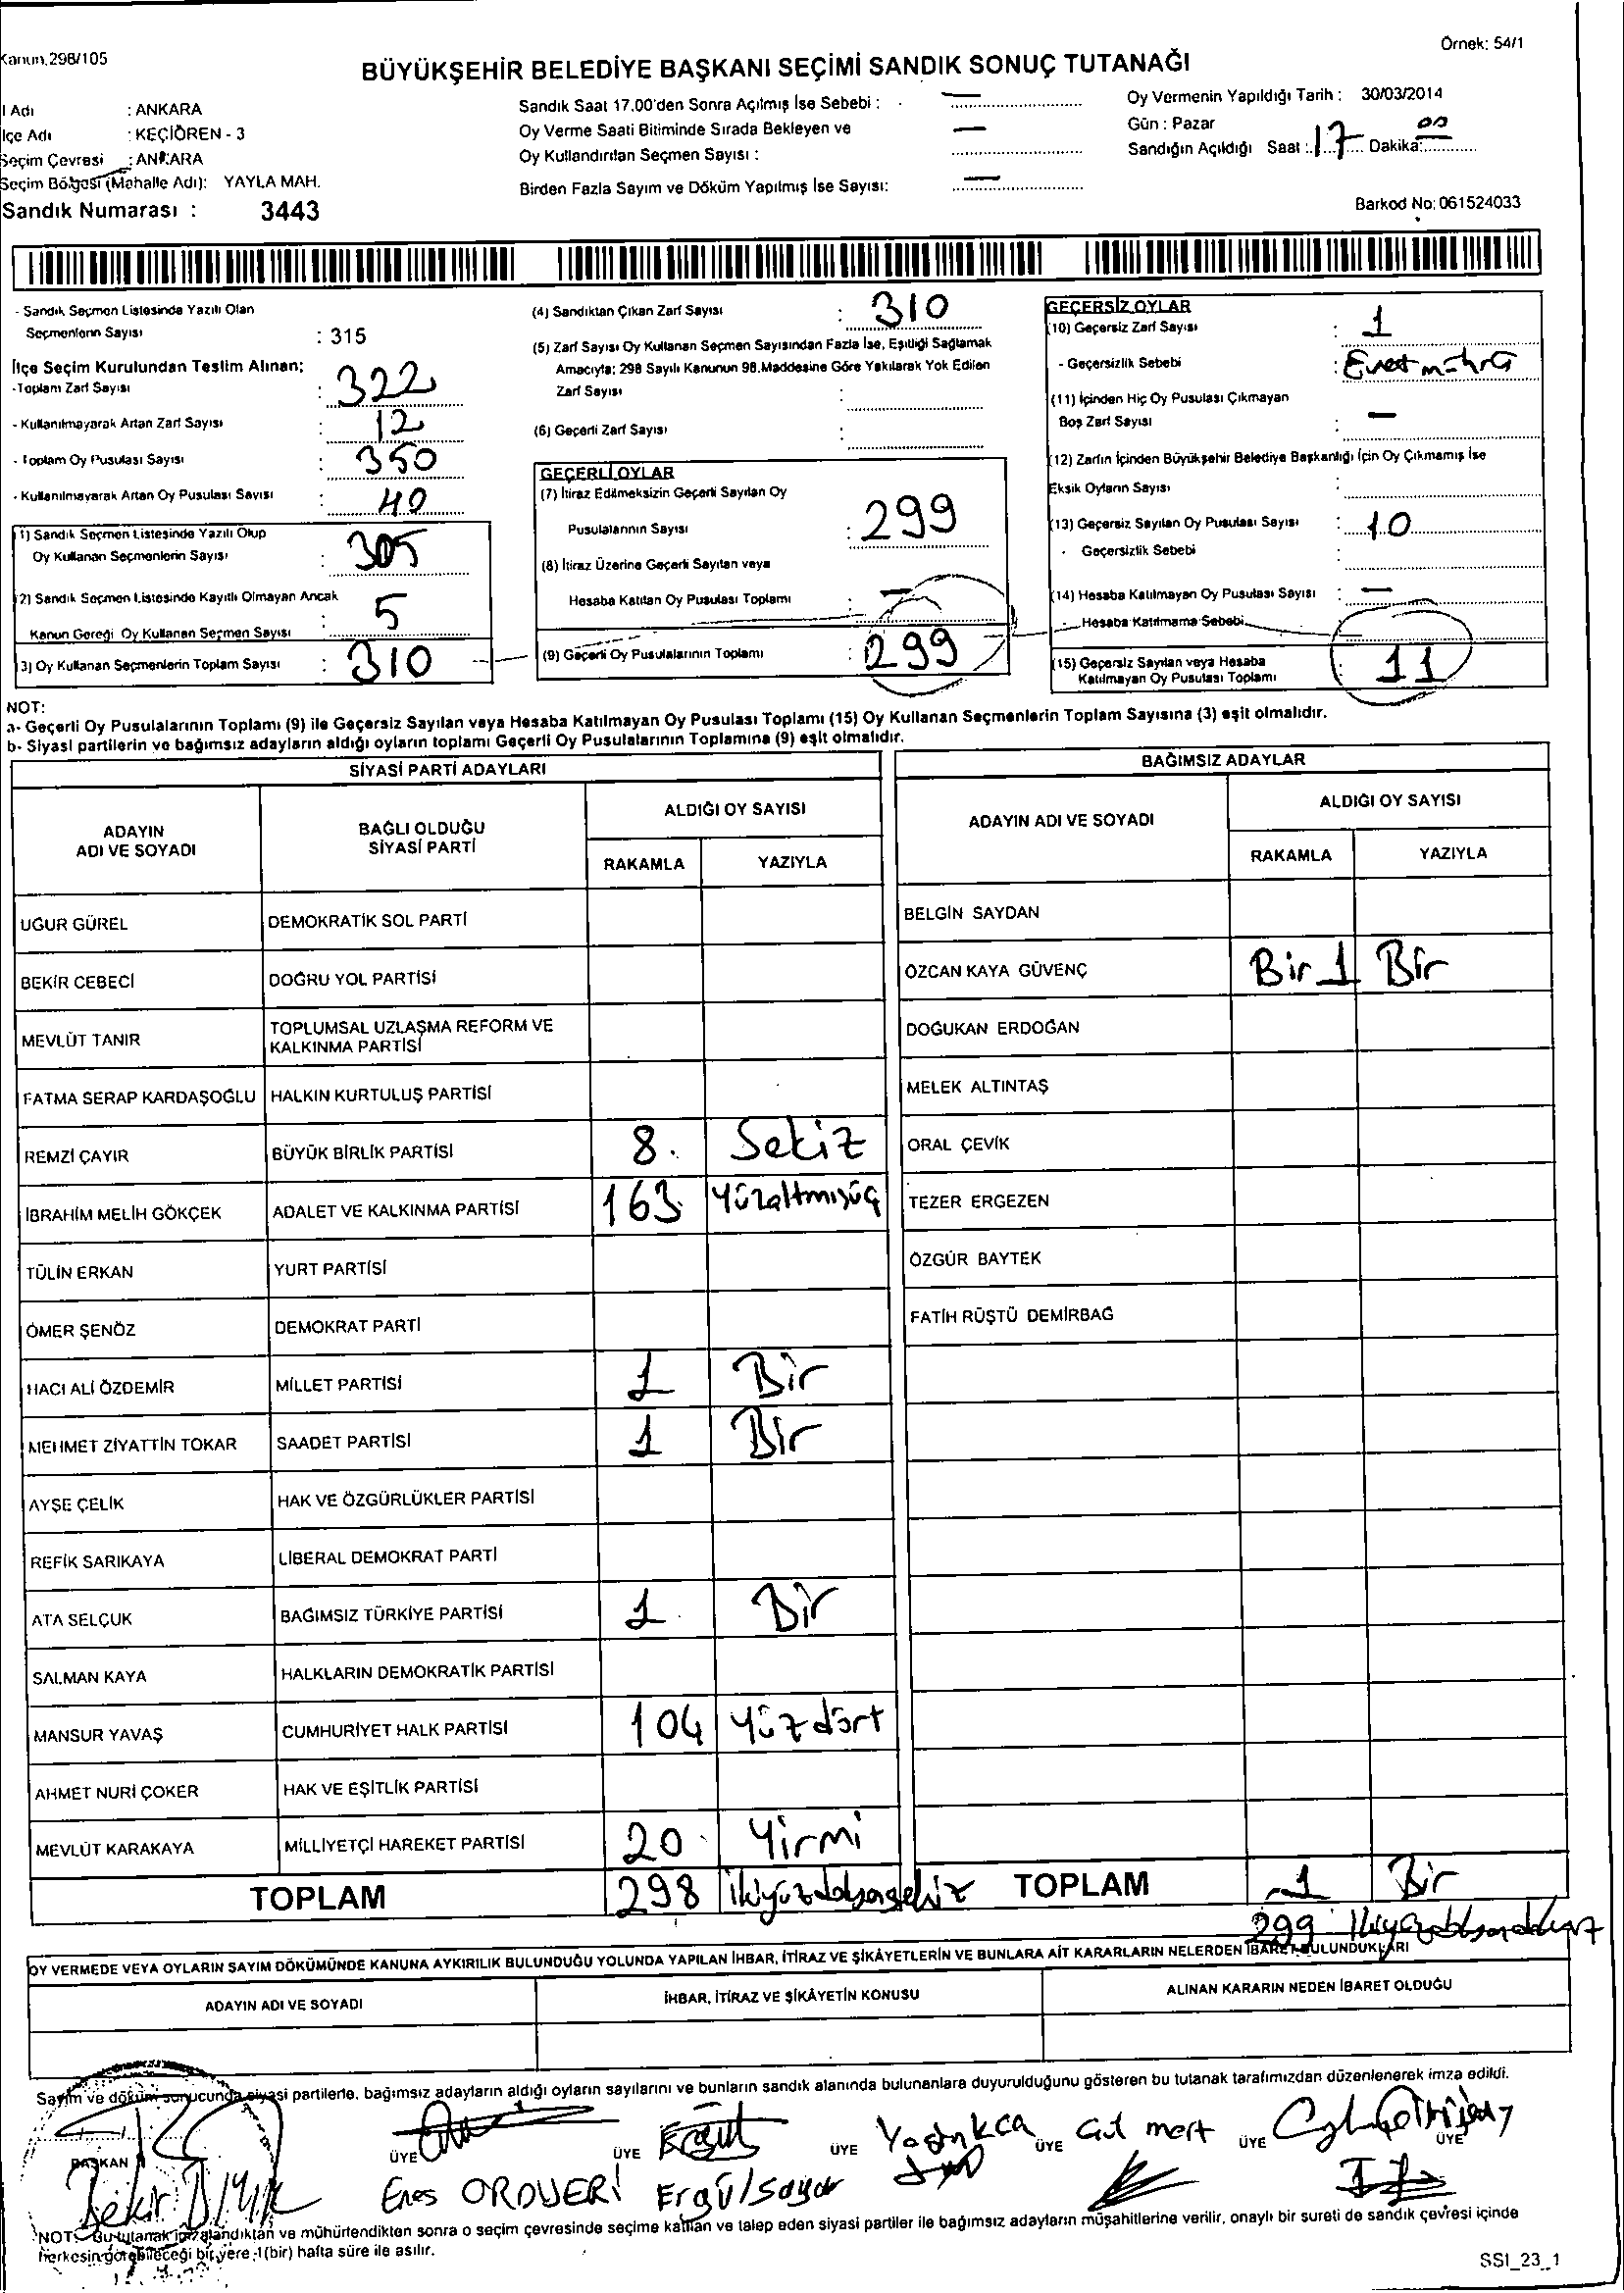 Kanun, 298/105
Örnek: 54/1
BÜYÜKŞEHİR BELEDİYE BAŞKANI SEÇİMİ SANDIK SONUÇ TUTANAĞI
İl Adı : ANKARA
İlçe Adı : KEÇİÖREN - 3
Seçim Çevresi : ANKARA
Seçim Bölgesi (Mahalle Adı): YAYLA MAH.
Sandık Numarası : 3443
Sandık Saat 17.00'den Sonra Açılmış İse Sebebi : —
Oy Verme Saati Bitiminde Sırada Bekleyen ve
Oy Kullandırılan Seçmen Sayısı : —
Birden Fazla Sayım ve Döküm Yapılmış İse Sayısı: —
Oy Vermenin Yapıldığı Tarih : 30/03/2014
Gün : Pazar
Sandığın Açıldığı Saat : 17 Dakika: 00
Barkod No: 061524033
- Sandık Seçmen Listesinde Yazılı Olan
Seçmenlerin Sayısı : 315
İlçe Seçim Kurulundan Teslim Alınan;
-Toplam Zarf Sayısı : 322
- Kullanılmayarak Artan Zarf Sayısı : 12
- Toplam Oy Pusulası Sayısı : 350
- Kullanılmayarak Artan Oy Pusulası Sayısı : 40
1) Sandık Seçmen Listesinde Yazılı Olup
Oy Kullanan Seçmenlerin Sayısı : 305
2) Sandık Seçmen Listesinde Kayıtlı Olmayan Ancak
Kanun Gereği Oy Kullanan Seçmen Sayısı : 5
3) Oy Kullanan Seçmenlerin Toplam Sayısı : 310
(4) Sandıktan Çıkan Zarf Sayısı : 310
(5) Zarf Sayısı Oy Kullanan Seçmen Sayısından Fazla İse, Eşitliği Sağlamak
Amacıyla; 298 Sayılı Kanunun 98.Maddesine Göre Yakılarak Yok Edilen
Zarf Sayısı :
(6) Geçerli Zarf Sayısı :
GEÇERLİ OYLAR
(7) İtiraz Edilmeksizin Geçerli Sayılan Oy
Pusulalarının Sayısı : 299
(8) İtiraz Üzerine Geçerli Sayılan veya
Hesaba Katılan Oy Pusulası Toplamı : —
(9) Geçerli Oy Pusulalarının Toplamı : 299
GEÇERSİZ OYLAR
(10) Geçersiz Zarf Sayısı : 1
- Geçersizlik Sebebi : Evet
(11) İçinden Hiç Oy Pusulası Çıkmayan
Boş Zarf Sayısı : —
(12) Zarfın İçinden Büyükşehir Belediye Başkanlığı İçin Oy Çıkmamış İse
Eksik Oyların Sayısı :
(13) Geçersiz Sayılan Oy Pusulası Sayısı : 10
- Geçersizlik Sebebi :
(14) Hesaba Katılmayan Oy Pusulası Sayısı : —
- Hesaba Katılmama Sebebi
(15) Geçersiz Sayılan veya Hesaba
Katılmayan Oy Pusulası Toplamı : 11
NOT:
a- Geçerli Oy Pusulalarının Toplamı (9) ile Geçersiz Sayılan veya Hesaba Katılmayan Oy Pusulası Toplamı (15) Oy Kullanan Seçmenlerin Toplam Sayısına (3) eşit olmalıdır.
b- Siyasi partilerin ve bağımsız adayların aldığı oyların toplamı Geçerli Oy Pusulalarının Toplamına (9) eşit olmalıdır.
SİYASİ PARTİ ADAYLARI
ADAYIN ADI VE SOYADI
BAĞLI OLDUĞU SİYASİ PARTİ
ALDIĞI OY SAYISI
RAKAMLA YAZIYLA
UĞUR GÜREL DEMOKRATİK SOL PARTİ
BEKİR CEBECİ DOĞRU YOL PARTİSİ
MEVLÜT TANIR TOPLUMSAL UZLAŞMA REFORM VE KALKINMA PARTİSİ
FATMA SERAP KARDAŞOĞLU HALKIN KURTULUŞ PARTİSİ
REMZİ ÇAYIR BÜYÜK BİRLİK PARTİSİ 8. Sekiz
İBRAHİM MELİH GÖKÇEK ADALET VE KALKINMA PARTİSİ 163 Yüzaltmışüç
TÜLİN ERKAN YURT PARTİSİ
ÖMER ŞENÖZ DEMOKRAT PARTİ
HACI ALİ ÖZDEMİR MİLLET PARTİSİ 1 Bir
MEHMET ZİYATTİN TOKAR SAADET PARTİSİ 1 Bir
AYŞE ÇELİK HAK VE ÖZGÜRLÜKLER PARTİSİ
REFİK SARIKAYA LİBERAL DEMOKRAT PARTİ
ATA SELÇUK BAĞIMSIZ TÜRKİYE PARTİSİ 1 Bir
SALMAN KAYA HALKLARIN DEMOKRATİK PARTİSİ
MANSUR YAVAŞ CUMHURİYET HALK PARTİSİ 104 Yüzdört
AHMET NURİ ÇOKER HAK VE EŞİTLİK PARTİSİ
MEVLÜT KARAKAYA MİLLİYETÇİ HAREKET PARTİSİ 20 Yirmi
TOPLAM 298 ikiyüzdoksansekiz
BAĞIMSIZ ADAYLAR
ADAYIN ADI VE SOYADI
ALDIĞI OY SAYISI
RAKAMLA YAZIYLA
BELGİN SAYDAN
ÖZCAN KAYA GÜVENÇ Bir 1 Bir
DOĞUKAN ERDOĞAN
MELEK ALTINTAŞ
ORAL ÇEVİK
TEZER ERGEZEN
ÖZGÜR BAYTEK
FATİH RÜŞTÜ DEMİRBAĞ
TOPLAM 1 Bir
299 ikiyüzdoksandokuz
OY VERMEDE VEYA OYLARIN SAYIM DÖKÜMÜNDE KANUNA AYKIRILIK BULUNDUĞU YOLUNDA YAPILAN İHBAR, İTİRAZ VE ŞİKÂYETLERİN VE BUNLARA AİT KARARLARIN NELERDEN İBARET BULUNDUKLARI
ADAYIN ADI VE SOYADI
İHBAR, İTİRAZ VE ŞİKÂYETİN KONUSU
ALINAN KARARIN NEDEN İBARET OLDUĞU
Sayım ve döküm sonucunda siyasi partilerle, bağımsız adayların aldığı oyların sayılarını ve bunların sandık alanında bulunanlara duyurulduğunu gösteren bu tutanak tarafımızdan düzenlenerek imza edildi.
BAŞKAN ÜYE ÜYE ÜYE ÜYE ÜYE ÜYE
Gül mert
Bekir
Enes ORDUERİ
NOT: Bu tutanak imzalandıktan ve mühürlendikten sonra o seçim çevresinde seçime katılan ve talep eden siyasi partiler ile bağımsız adayların müşahitlerine verilir, onaylı bir sureti de sandık çevresi içinde
herkesin görebileceği bir yere 1(bir) hafta süre ile asılır.
SSI_23_1